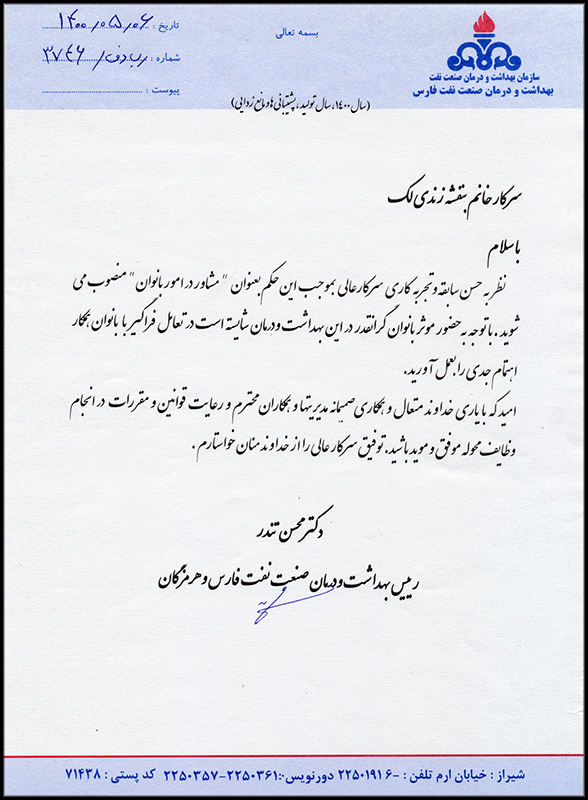 بسمه تعالی
تاریخ : ۱۴۰۰/۰۵/۰۶
شماره : رب دف/۳۷۴۶
پیوست :
سازمان بهداشت و درمان صنعت نفت
بهداشت و درمان صنعت نفت فارس
(سال ۱۴۰۰، سال تولید، پشتیبانی ها و مانع زدایی)
سرکار خانم بنفشه زندی لک
با سلام
نظر به حسن سابقه و تجربه کاری سرکارعالی بموجب این حکم بعنوان "مشاور در امور بانوان" منصوب می
شوید. با توجه به حضور موثر بانوان گرانقدر در این بهداشت و درمان شایسته است در تعامل فراگیر با بانوان همکار
اهتمام جدی را بعمل آورید.
امید که با یاری خداوند متعال و همکاری صمیمانه مدیریتها و همکاران محترم و رعایت قوانین و مقررات در انجام
وظایف محوله موفق و موید باشید. توفیق سرکار عالی را از خداوند منان خواستارم .
دکتر محسن تندر
رییس بهداشت و درمان صنعت نفت فارس و هرمزگان
شیراز : خیابان ارم تلفن : ۶-۲۲۵۰۱۹۱ دورنویس: ۲۲۵۰۳۶۱-۲۲۵۰۳۵۷ کد پستی : ۷۱۴۳۸